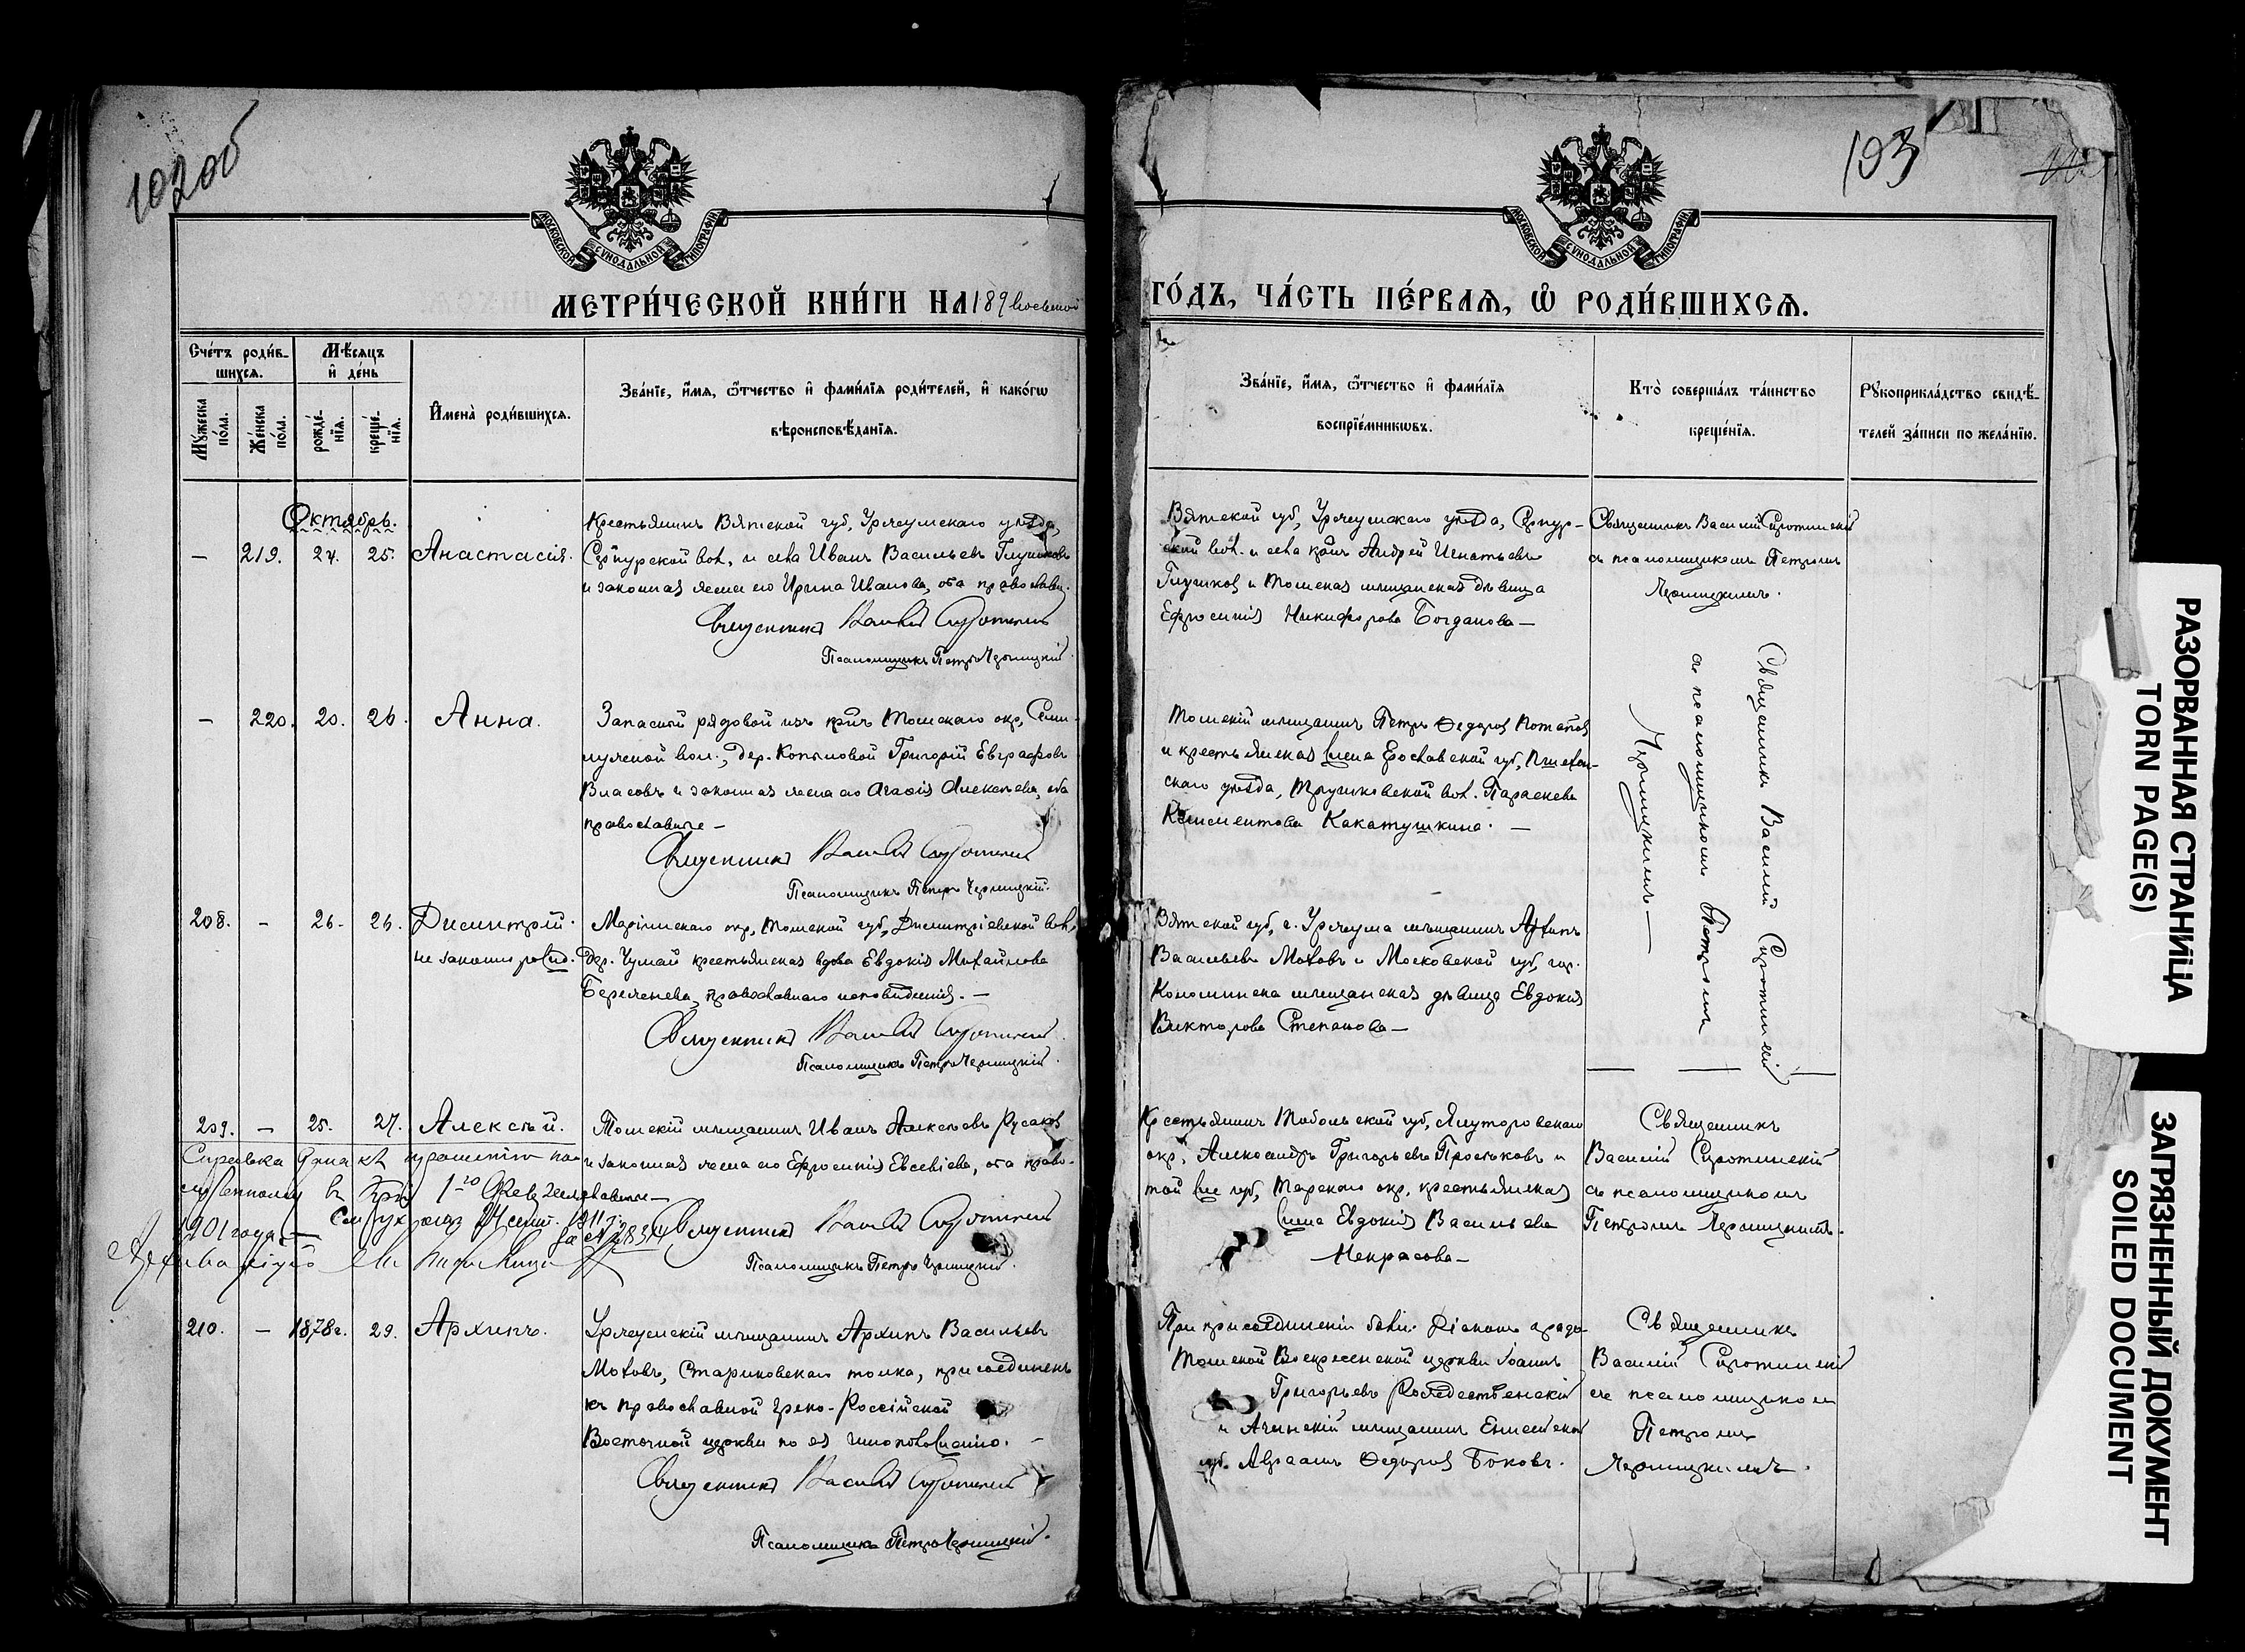 102об
103
МОСКОВСКОЙ СѴНОДАЛЬНОЙ ТИПОГРАФІИ
МОСКОВСКОЙ СѴНОДАЛЬНОЙ ТИПОГРАФІИ
МЕТРИ́ЧЕСКОЙ КНИ́ГИ НА 189 восьмой
ГО́ДЪ, ЧА́СТЬ ПЕ́РВАЯ, Ѡ РОДИ́ВШИХСЯ.
Сче́тъ роди́в-
шихся.
Му́жеска по́ла.
Же́нска по́ла.
Мѣ́сяцъ и де́нь
рожде́-нія.
креще́-нія.
И҆мена̀ роди́вшихся.
Зва́нїе, и҆́мя, ѻ҆́тчество и҆ фами́лїя роди́телей, и҆ како́гѡ
вѣроисповѣ́данїя.
Зва́нїе, и҆́мя, ѻ҆́тчество и҆ фами́лїя
воспрїе́мникѡвъ.
Кто̀ соверша́лъ та́инство
креще́нїя.
Рꙋкоприкла́дство свидѣ́-
телей за́писи по жела́нїю.
Октябрь.
— 219. 24. 25. Анастасія.
Крестьянинъ Вятской губ, Уржумскаго уѣзда,
Сернурской вол. и села Иванъ Васильевъ Глушковъ
и законная жена его Ирина Иванова, оба православн.
Священникъ Василій Сиротинскій
Псаломщикъ Петръ Чермицкій.
Вятской губ, Уржумскаго уѣзда, Сернур-
ской вол. и села кр̃нъ Андрей Игнатьевъ
Глушковъ и Томская мѣщанская дѣвица
Ефросинія Никифорова Богданова —
Священникъ Василій Сиротинскій
съ псаломщикомъ Петромъ
Чермицкимъ.
— 220. 20. 26. Анна.
Запасной рядовой изъ кр̃нъ Томскаго окр, Семи-
лужной вол., дер. Копыловой Григорій Евграфовъ
Власовъ и законная жена его Агафія Алексѣева, оба
православные —
Священникъ Василій Сиротинскій
Псаломщикъ Петръ Чермицкій.
Томскій мѣщанинъ Петръ Ѳедоровъ Потаповъ
и крестьянская жена Ярославской губ,
скаго уѣзда, Трушковской вол. Параскева
Климентова Какатушкина. —
Священникъ Василій Сиротинскій
съ псаломщикомъ Петромъ
Чермицкимъ —
208. — 26. 26. Димитрій.
незаконнорожд.
Маріинскаго окр, Томской губ, Димитріевской вол,
дер. Чумай крестьянская вдова Евдокія Михайлова
Береженева, православнаго исповѣданія. —
Священникъ Василій Сиротинскій
Псаломщикъ Петръ Чермицкій.
Вятской губ, г. Уржума мѣщанинъ Архипъ
Васильевъ Моховъ и Московской губ, гор.
Коломенска мѣщанская дѣвица Евдокія
Викторова Степанова —
209. — 25. 27. Алексѣй.
Томскій мѣщанинъ Иванъ Алексѣевъ Русаковъ
и законная жена его Ефросинія Евсевіева, оба право-
славные —
Справка дана къ прошенію
1901 года —
Священникъ Василій Сиротинскій
Псаломщикъ Петръ Чермицкій.
Крестьянинъ Тобольской губ, Ялуторовскаго
окр, Александръ Григорьевъ Простаковъ и
той же губ, Тарскаго окр, крестьянская
жена Евдокія Васильева
Некрасова —
Священникъ
Василій Сиротинскій
съ псаломщикомъ
Петромъ Чермицкимъ.
210. — 1878г. 29. Архипъ.
Уржумскій мѣщанинъ Архипъ Васильевъ
Моховъ, Стариковскаго толка, присоединенъ
къ православной Греко-Россійской
Восточной церкви по ея чиноположенію. —
Священникъ Василій Сиротинскій
Псаломщикъ Петръ Чермицкій.
При присоединеніи были: діаконъ градо-
Томской Воскресенской церкви Іоаннъ
Григорьевъ Рождественскій
и Ачинскій мѣщанинъ Енисейской
губ. Авраамъ Ѳедоровъ Боковъ.
Священникъ
Василій Сиротинскій
съ псаломщикомъ
Петромъ
Чермицкимъ.
РАЗОРВАННАЯ СТРАНИЦА
TORN PAGE(S)
ЗАГРЯЗНЕННЫЙ ДОКУМЕНТ
SOILED DOCUMENT